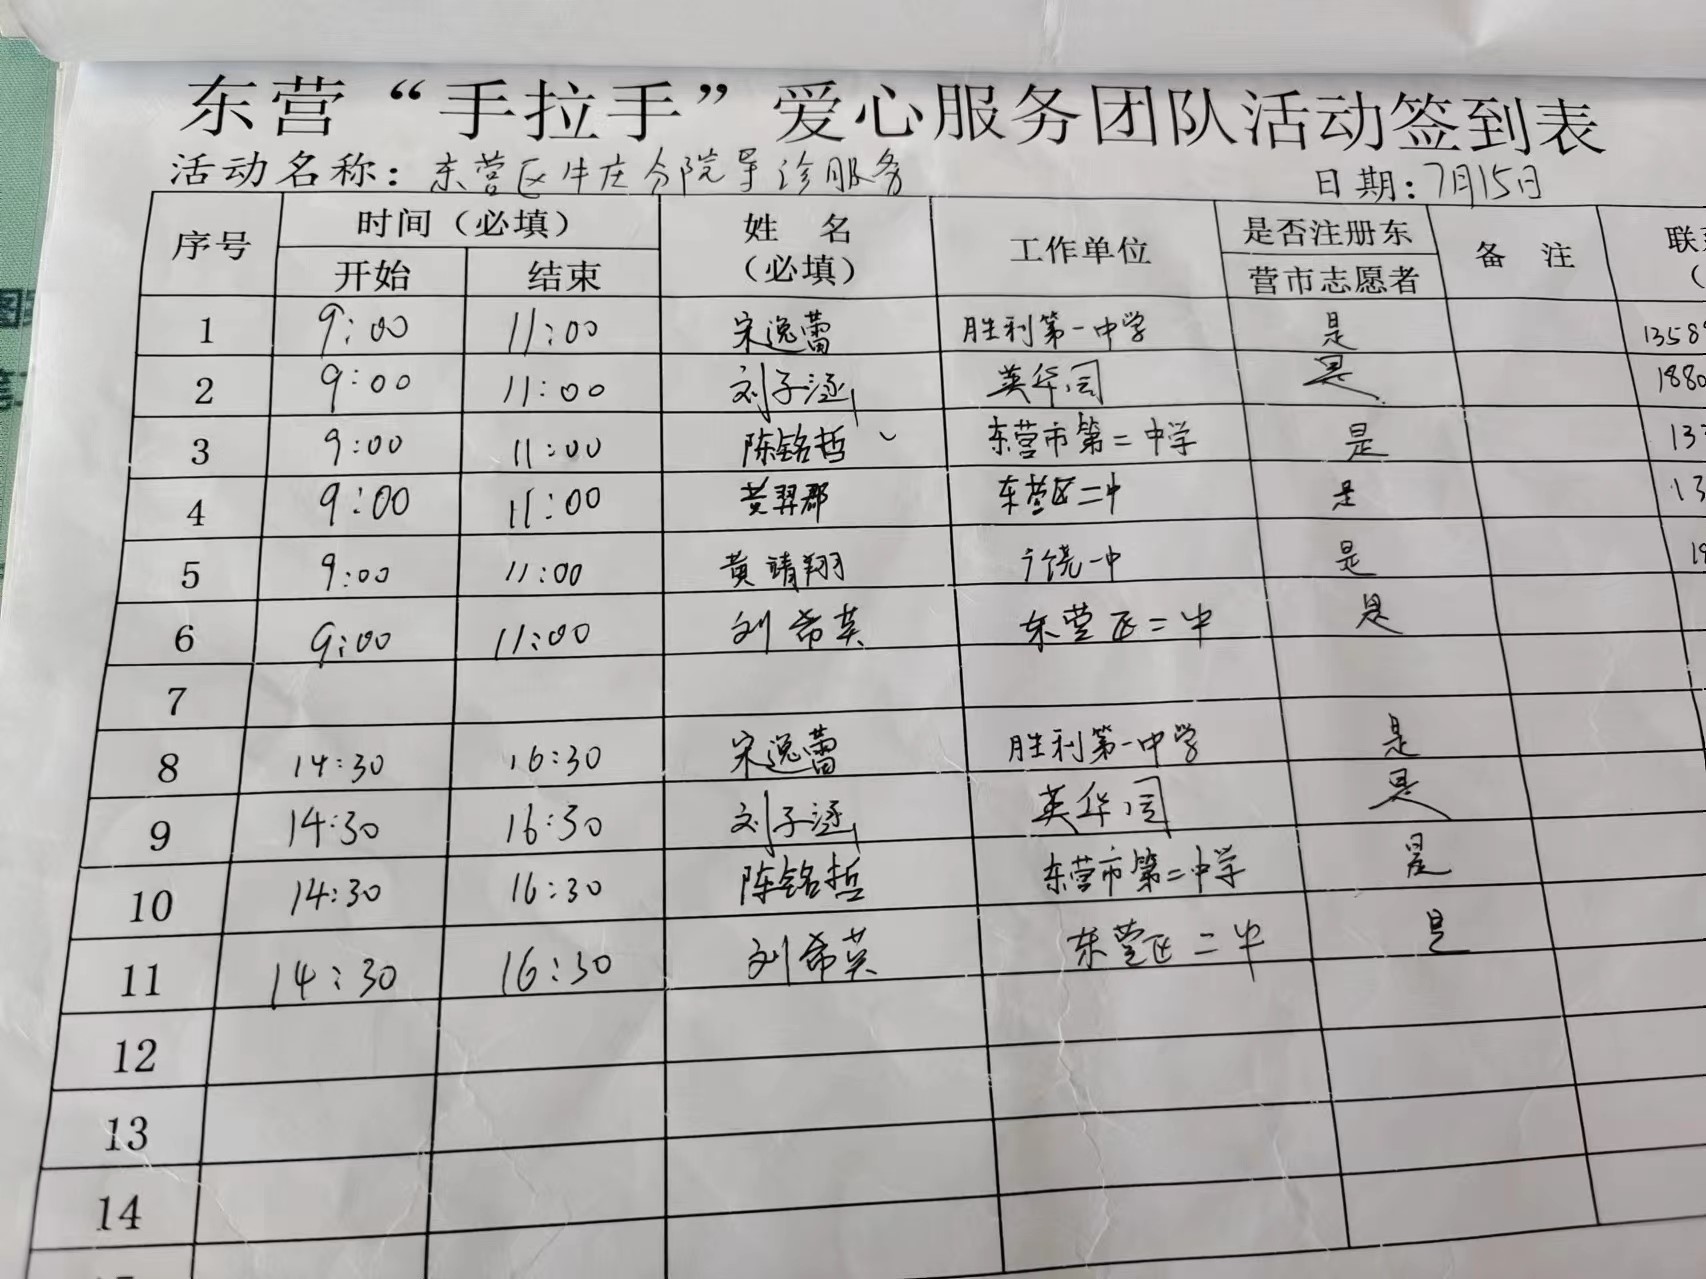 东营“手拉手”爱心服务团队活动签到表
活动名称：东营区牛庄分院导诊服务 日期：7月15日
序号 时间（必填） 姓名（必填） 工作单位 是否注册东营市志愿者 备注 联
开始 结束
1 9:00 11:00 宋逸蕾 胜利第一中学 是 1358
2 9:00 11:00 刘子涵 英华园 是 1880
3 9:00 11:00 陈铭哲 东营市第二中学 是 13
4 9:00 11:00 黄羿郡 东营区二中 是 13
5 9:00 11:00 黄靖翔 广饶一中 是 1
6 9:00 11:00 刘希英 东营区二中 是
7
8 14:30 16:30 宋逸蕾 胜利第一中学 是
9 14:30 16:30 刘子涵 英华园 是
10 14:30 16:30 陈铭哲 东营市第二中学 是
11 14:30 16:30 刘希英 东营区二中 是
12
13
14